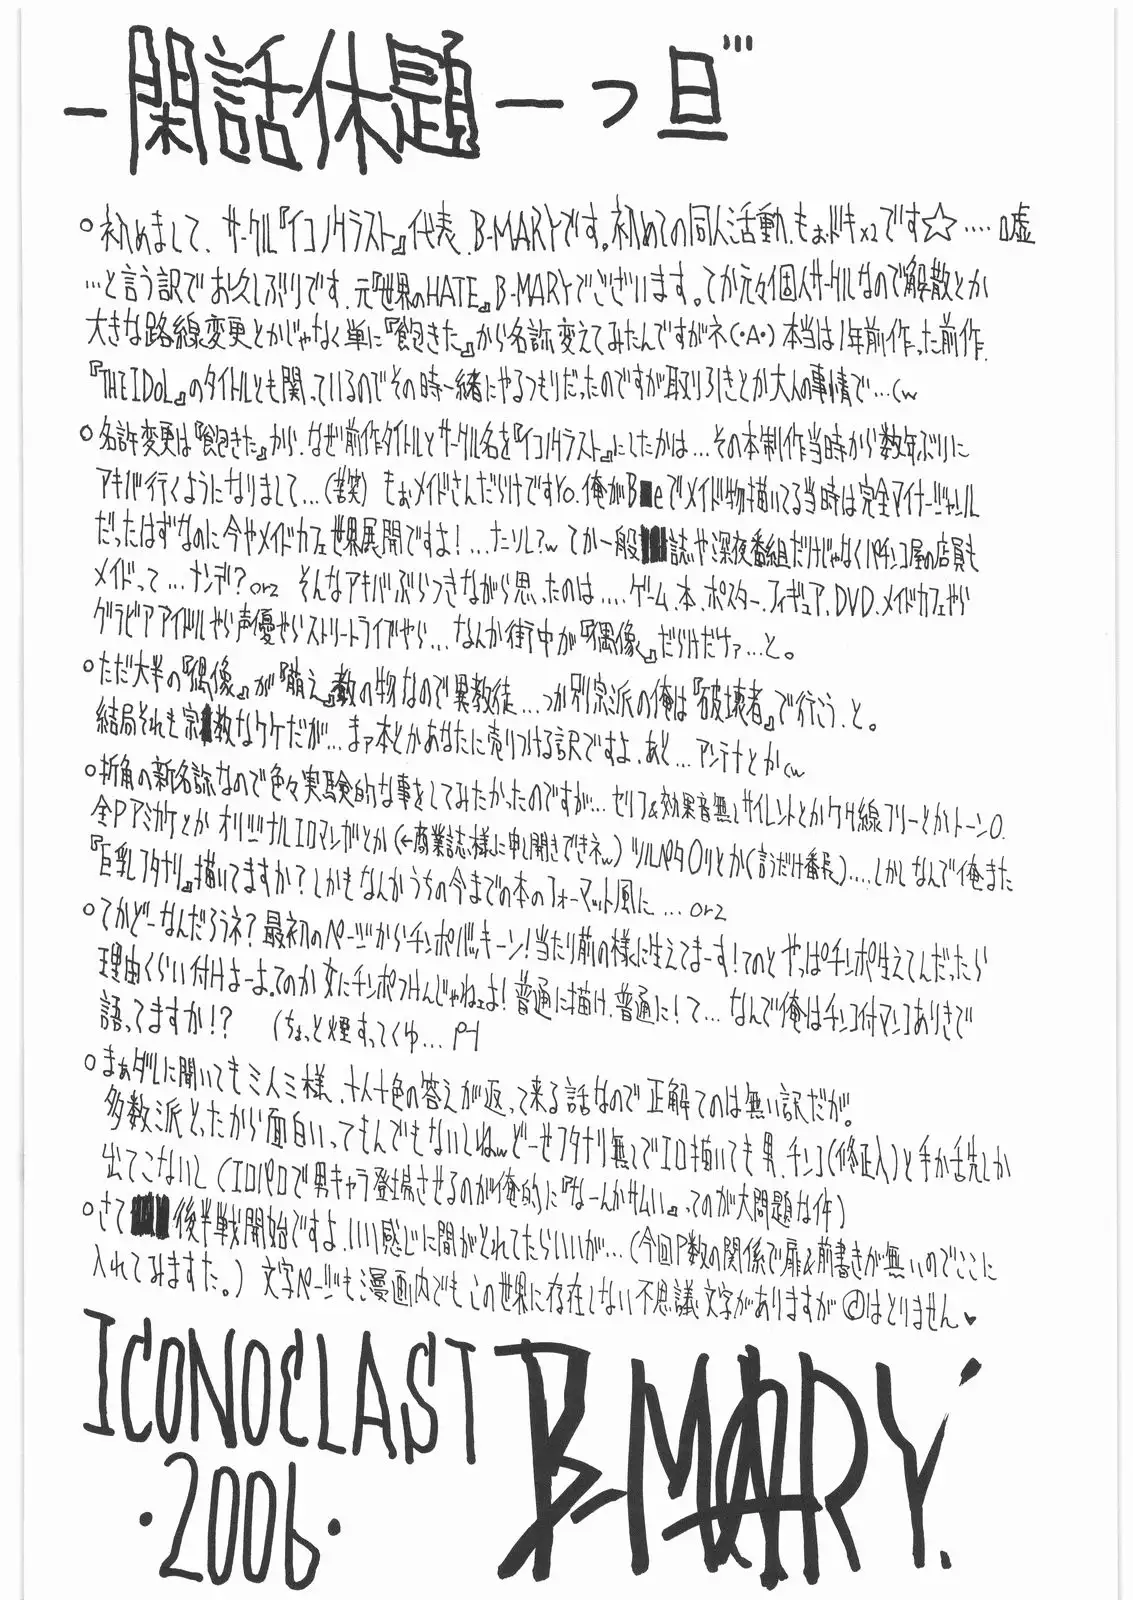 –閑話休題– 一つ旦'''
○初めまして、サークル『イコノクラスト』代表、B-MARYです。初めての同人活動、もぉドキx2です☆‥‥嘘
…と言う訳でお久しぶりです、元『世界のHATE』B-MARYでございます。てか元々個人サークルなので解散とか
大きな路線変更とかじゃなく単に『飽きた』から名称変えてみたんですがネ(・A・)本当は1年前作った前作、
『THE IDOL』のタイトルとも関っているのでその時一緒にやるつもりだったのですが取り引きとか大人の事情で…(w
○名称変更は『飽きた』から、なぜ前作タイトルとサークル名を『イコノクラスト』にしたかは…その本制作当時から数年ぶりに
アキバ行くようになりまして…(苦笑) もぉメイドさんだらけですYO。俺がB■eでメイド物描いてる当時は完全マイナージャンル
だったはずなのに今やメイドカフェ世界展開ですよ!…たりして?w てか一般誌や深夜番組だけじゃなくパチンコ屋の店員も
メイドって…ナンデ?orz そんなアキバぶらつきながら思ったのは‥‥ゲーム、本、ポスター、フィギュア、DVD、メイドカフェやら
グラビアアイドルやら声優やらストリートライブやら…なんか街中が『偶像』だらけだナァ…と。
○ただ大半の『偶像』が『萌え』教の物なので異教徒…つか別宗派の俺は『破壊者』で行こう、と。
結局それも宗教なワケだが…まァ本とかあなたに売りつける訳ですよ、あと…アンテナとか(w
○折角の新名称なので色々実験的な事をしてみたかったのですが…セリフ&効果音無しサイレントとかケイ線フリーとかトーン0、
全Pアミカケとか オリジナルエロマンガとか(←商業誌様に申し開きできネw) ツルペタロリとか(言うだけ番長)‥‥しかしなんで俺また
『巨乳フタナリ』描いてますか?しかもなんかうちの今までの本のフォーマット風に…orz
○てかどーなんだろうネ?最初のページからチンポバッキーン!当たり前の様に生えてまーす!てのと やっぱチンポ生えてんだったら
理由くらい付けよーよ。てのか 女にチンポつけんじゃねェよ!普通に描け、普通に!て…なんで俺はチンコ付マンコありきで
語ってますか!? (ちょっと煙すってくゅ…P-|
○まぁダレに聞いてもミ人ミ様、十人十色の答えが返って来る話なので正解てのは無い訳だが。
多数派とったから面白いってもんでもないしねw どーせフタナリ無しでエロ描いても男、チンコ(修正入)と手か舌先しか
出てこないし (エロパロで男キャラ登場させるのが俺的に『なーんかサムい』ってのが大問題な件)
○さて 後半戦開始ですよ、いい感じに間がとれてたらいいが…(今回P数の関係で扉&前書きが無いのでここに
入れてみますた。) 文字ページも漫画内でもこの世界に存在しない不思議文字がありますが はとりません♥
ICONOCLAST
・2006・
B-MARY.